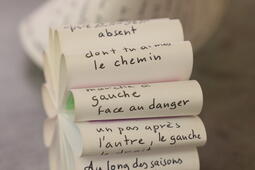 absent
dont tu aimes
le chemin
marche à
gauche
face au danger
un pas après
l'autre, le gauche
Au long des saisons